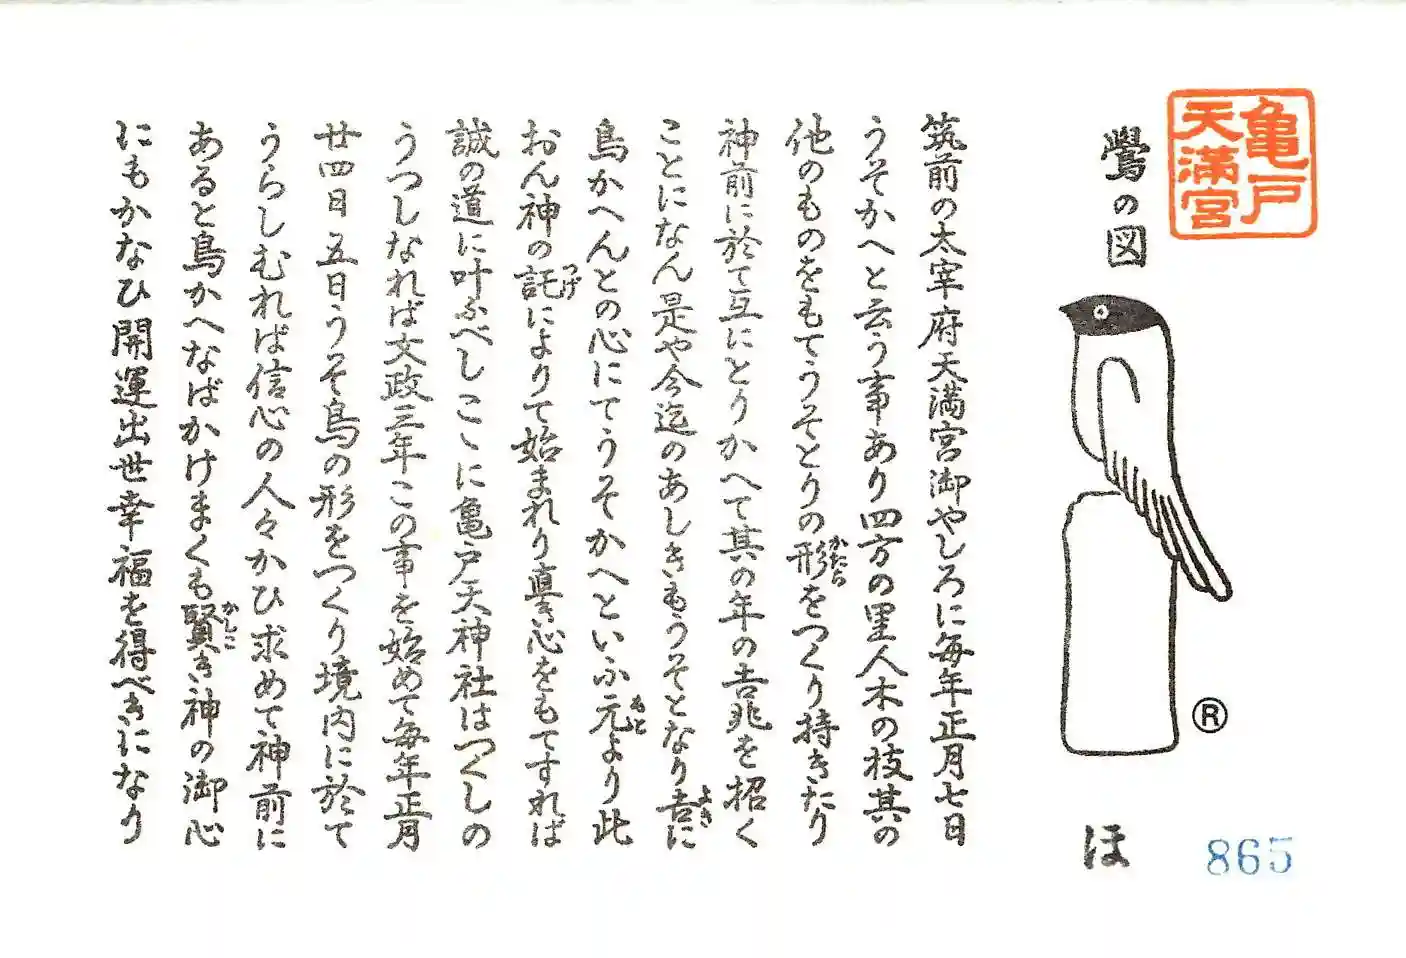 亀戸
天満宮
鷽の図
®
ほ
865
筑前の太宰府天満宮御やしろに毎年正月七日
うそかへと云う事あり四方の里人木の枝其の
他のものをもてうそとりの形をつくり持きたり
かたち
神前に於て互にとりかへて其の年の吉兆を招く
ことになん是や今迄のあしきもうそとなり吉に
よき
鳥かへんとの心にてうそかへといふ元より此
もと
おん神の託によりて始まれり直き心をもてすれば
つげ
誠の道に叶ふべしこゝに亀戸天神社はつくしの
うつしなれば文政三年この事を始めて毎年正月
廿四日五日うそ鳥の形をつくり境内に於て
うらしむれば信心の人々かひ求めて神前に
あると鳥かへなばかけまくも賢き神の御心
かしこ
にもかなひ開運出世幸福を得べきになり